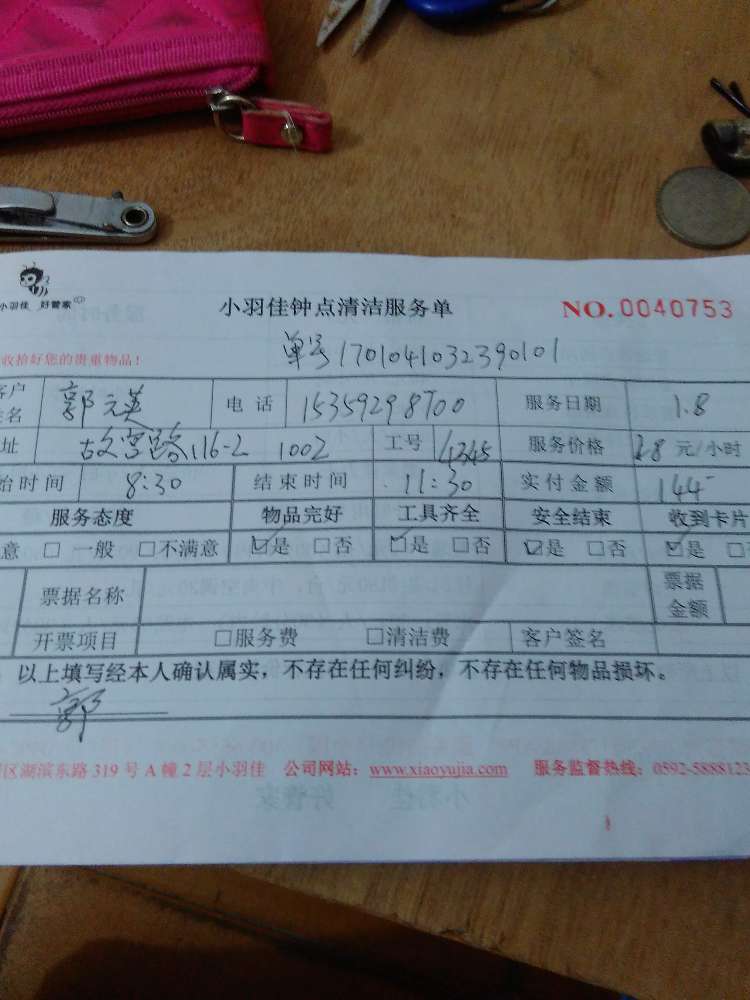 小羽佳 好管家
小羽佳钟点清洁服务单 NO. 0040753
收拾好您的贵重物品！ 单号1701041032390101
客户姓名 郭元英 电话 15359298700 服务日期 1.8
址 故宫路116-2 1002 工号 4345 服务价格 元/小时
始时间 8:30 结束时间 11:30 实付金额 144
服务态度 物品完好 工具齐全 安全结束 收到卡片
意 □ 一般 □不满意 ☑是 □否 ☑是 □否 ☑是 □否 ☑是 □
票据名称 票据金额
开票项目 □服务费 □清洁费 客户签名
以上填写经本人确认属实，不存在任何纠纷，不存在任何物品损坏。
郭
区湖滨东路 319 号 A 幢 2 层小羽佳 公司网站：www.xiaoyujia.com 服务监督热线：0592-5888123